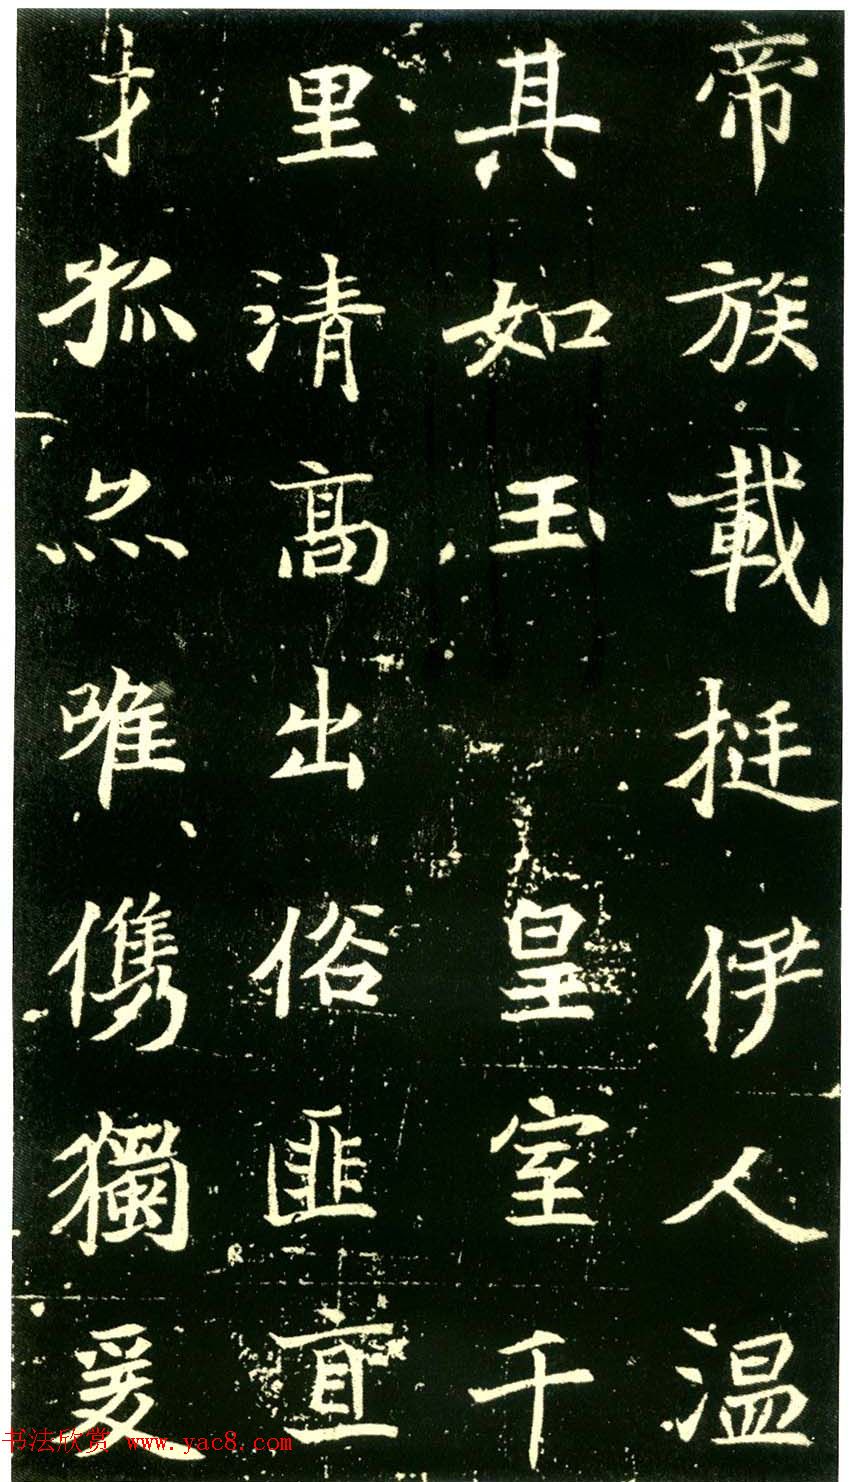 帝族載挺伊人温
其如玉皇室千
里清高出俗匪直
才孤亦唯儁獨爰
书法欣赏 www.yac8.com